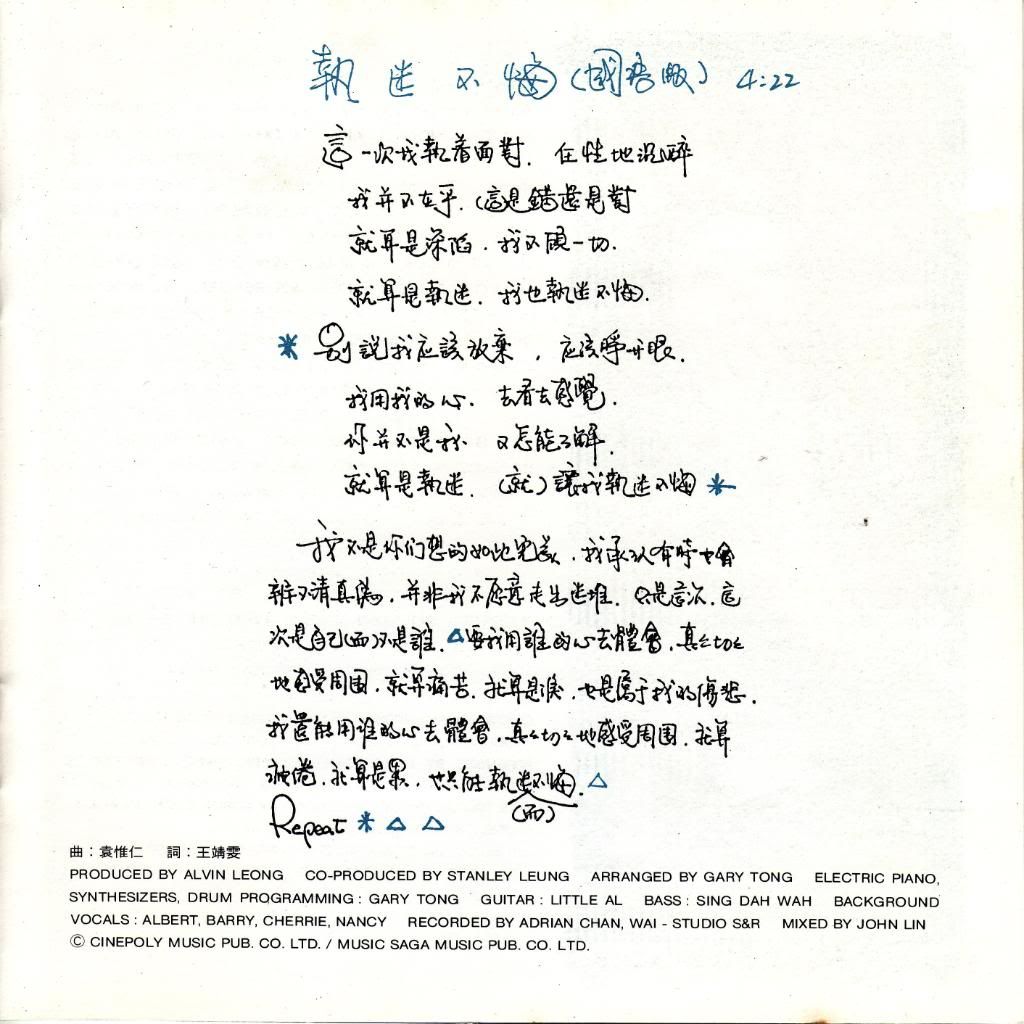 執迷不悔(國語版) 4:22
這一次我執着面對. 任性地沉醉
我并不在乎. 這是錯還是對
就算是深陷. 我不顧一切.
就算是執迷. 我也執迷不悔.
* 別說我应該放棄, 应該睜开眼.
我用我的心. 去看去感覺.
你并不是我 又怎能了解.
就算是執迷. (就)讓我執迷不悔 *
我不是你们想的如此完美. 我承认有時也會
辨不清真偽. 并非我不愿意走出迷堆. 只是這次. 這
次是自己(而)不是誰. △要我用誰的心去體會. 真真切切
地感受周围. 就算痛苦. 就算是淚. 也是属于我的傷悲.
我還能用谁的心去體會. 真真切切地感受周围. 就算
疲倦. 就算是累. 也只能執迷不悔. △
(而)
Repeat * △ △
曲:袁惟仁 詞:王靖雯
PRODUCED BY ALVIN LEONG CO-PRODUCED BY STANLEY LEUNG ARRANGED BY GARY TONG ELECTRIC PIANO,
SYNTHESIZERS, DRUM PROGRAMMING : GARY TONG GUITAR : LITTLE AL BASS : SING DAH WAH BACKGROUND
VOCALS : ALBERT, BARRY, CHERRIE, NANCY RECORDED BY ADRIAN CHAN, WAI - STUDIO S&R MIXED BY JOHN LIN
© CINEPOLY MUSIC PUB. CO. LTD. / MUSIC SAGA MUSIC PUB. CO. LTD.